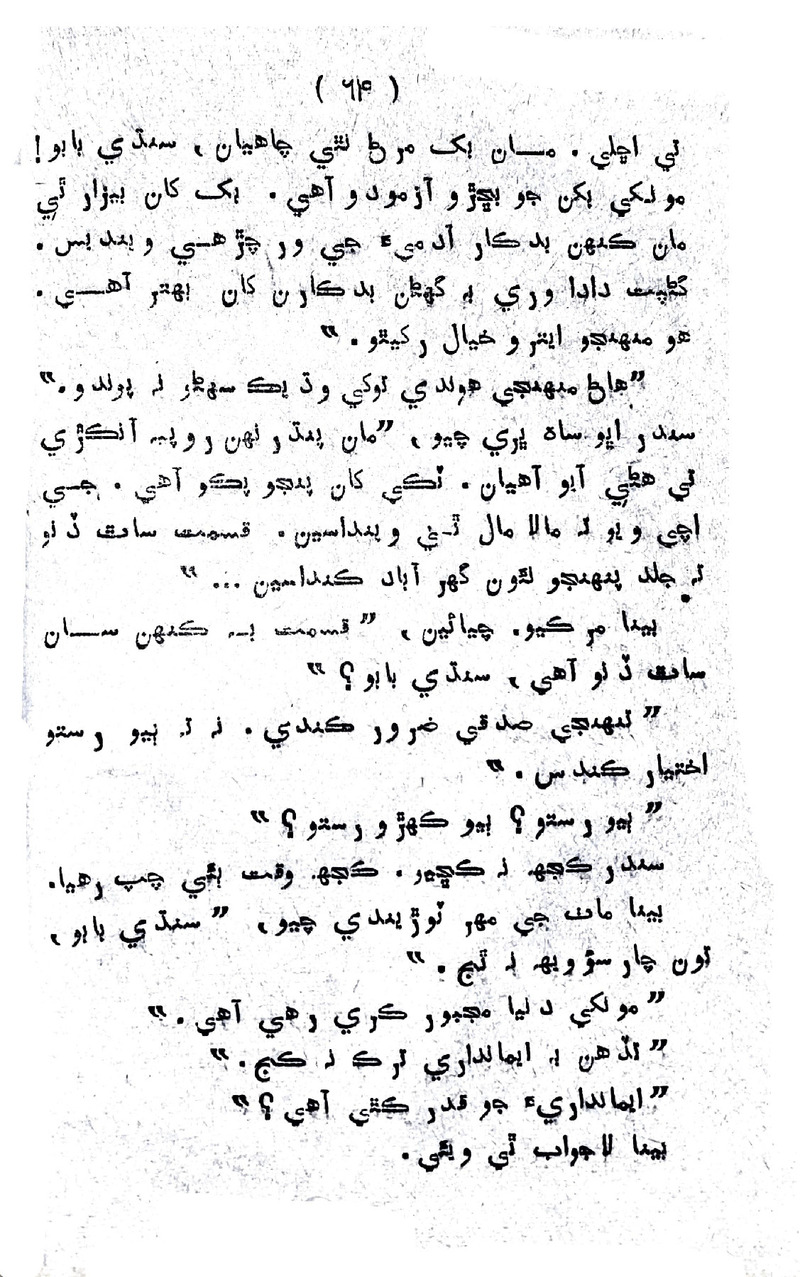 ( ٦٤ )
تي اچلي . مــان بک مرڻ نٿي چاهيان ، سنڌي بابو!
مونکي بکن جو بڇڙو آزمودو آهي . بک کان بيزار ٿي
مان ڪنهن بدڪار آدميءَ جي ور چڙهــي وينديس .
گڻپت دادا وري بہ گهڻن بدڪارن کان بهتر آهــي .
هو منهنجو ايترو خيال رکيٿو . “
”هاڻ منهنجي هوندي توکي وڌيڪ سهڻو نہ پوندو .“
سندر اڀو ساھ ڀري چيو ، ”مان پندرنهن روپيہ آنڪڙي
تي هڻي آيو آهيان . ٽڪي کان پنجو پڪو آهي . جــي
اچي ويو تہ مالا مال ٿــي وينداسين . قسمت ساٿ ڏنو
تہ جلد پنهنجو نئون گهر آباد ڪنداسين ... “
بينا مرڪيو. چيائين ، ”قسمت بــہ ڪنهن ســان
ساٿ ڏنو آهي ، سنڌي بابو ؟ “
” تنهنجي صدقي ضرور ڪندي . نہ تہ ٻيو رستو
اختيار ڪندس . “
” ٻيو رستو ؟ ٻيو ڪهڙو رستو ؟ “
سندر ڪجهہ نہ ڪڇيو . ڪجهہ وقت ٻئي چپ رهيا.
بينا ماٺ جي مهر ٽوڙيندي چيو ، ”سنڌي بابو ،
تون چار سؤ ويهہ نہ ٿج . “
” مونکي دنيا مجبور ڪري رهي آهي . “
” تڏهن بہ ايمانداري ترڪ نہ ڪج . “
” ايمانداريءَ جو قدر ڪٿي آهي ؟ “
بينا لاجواب ٿي ويئي .